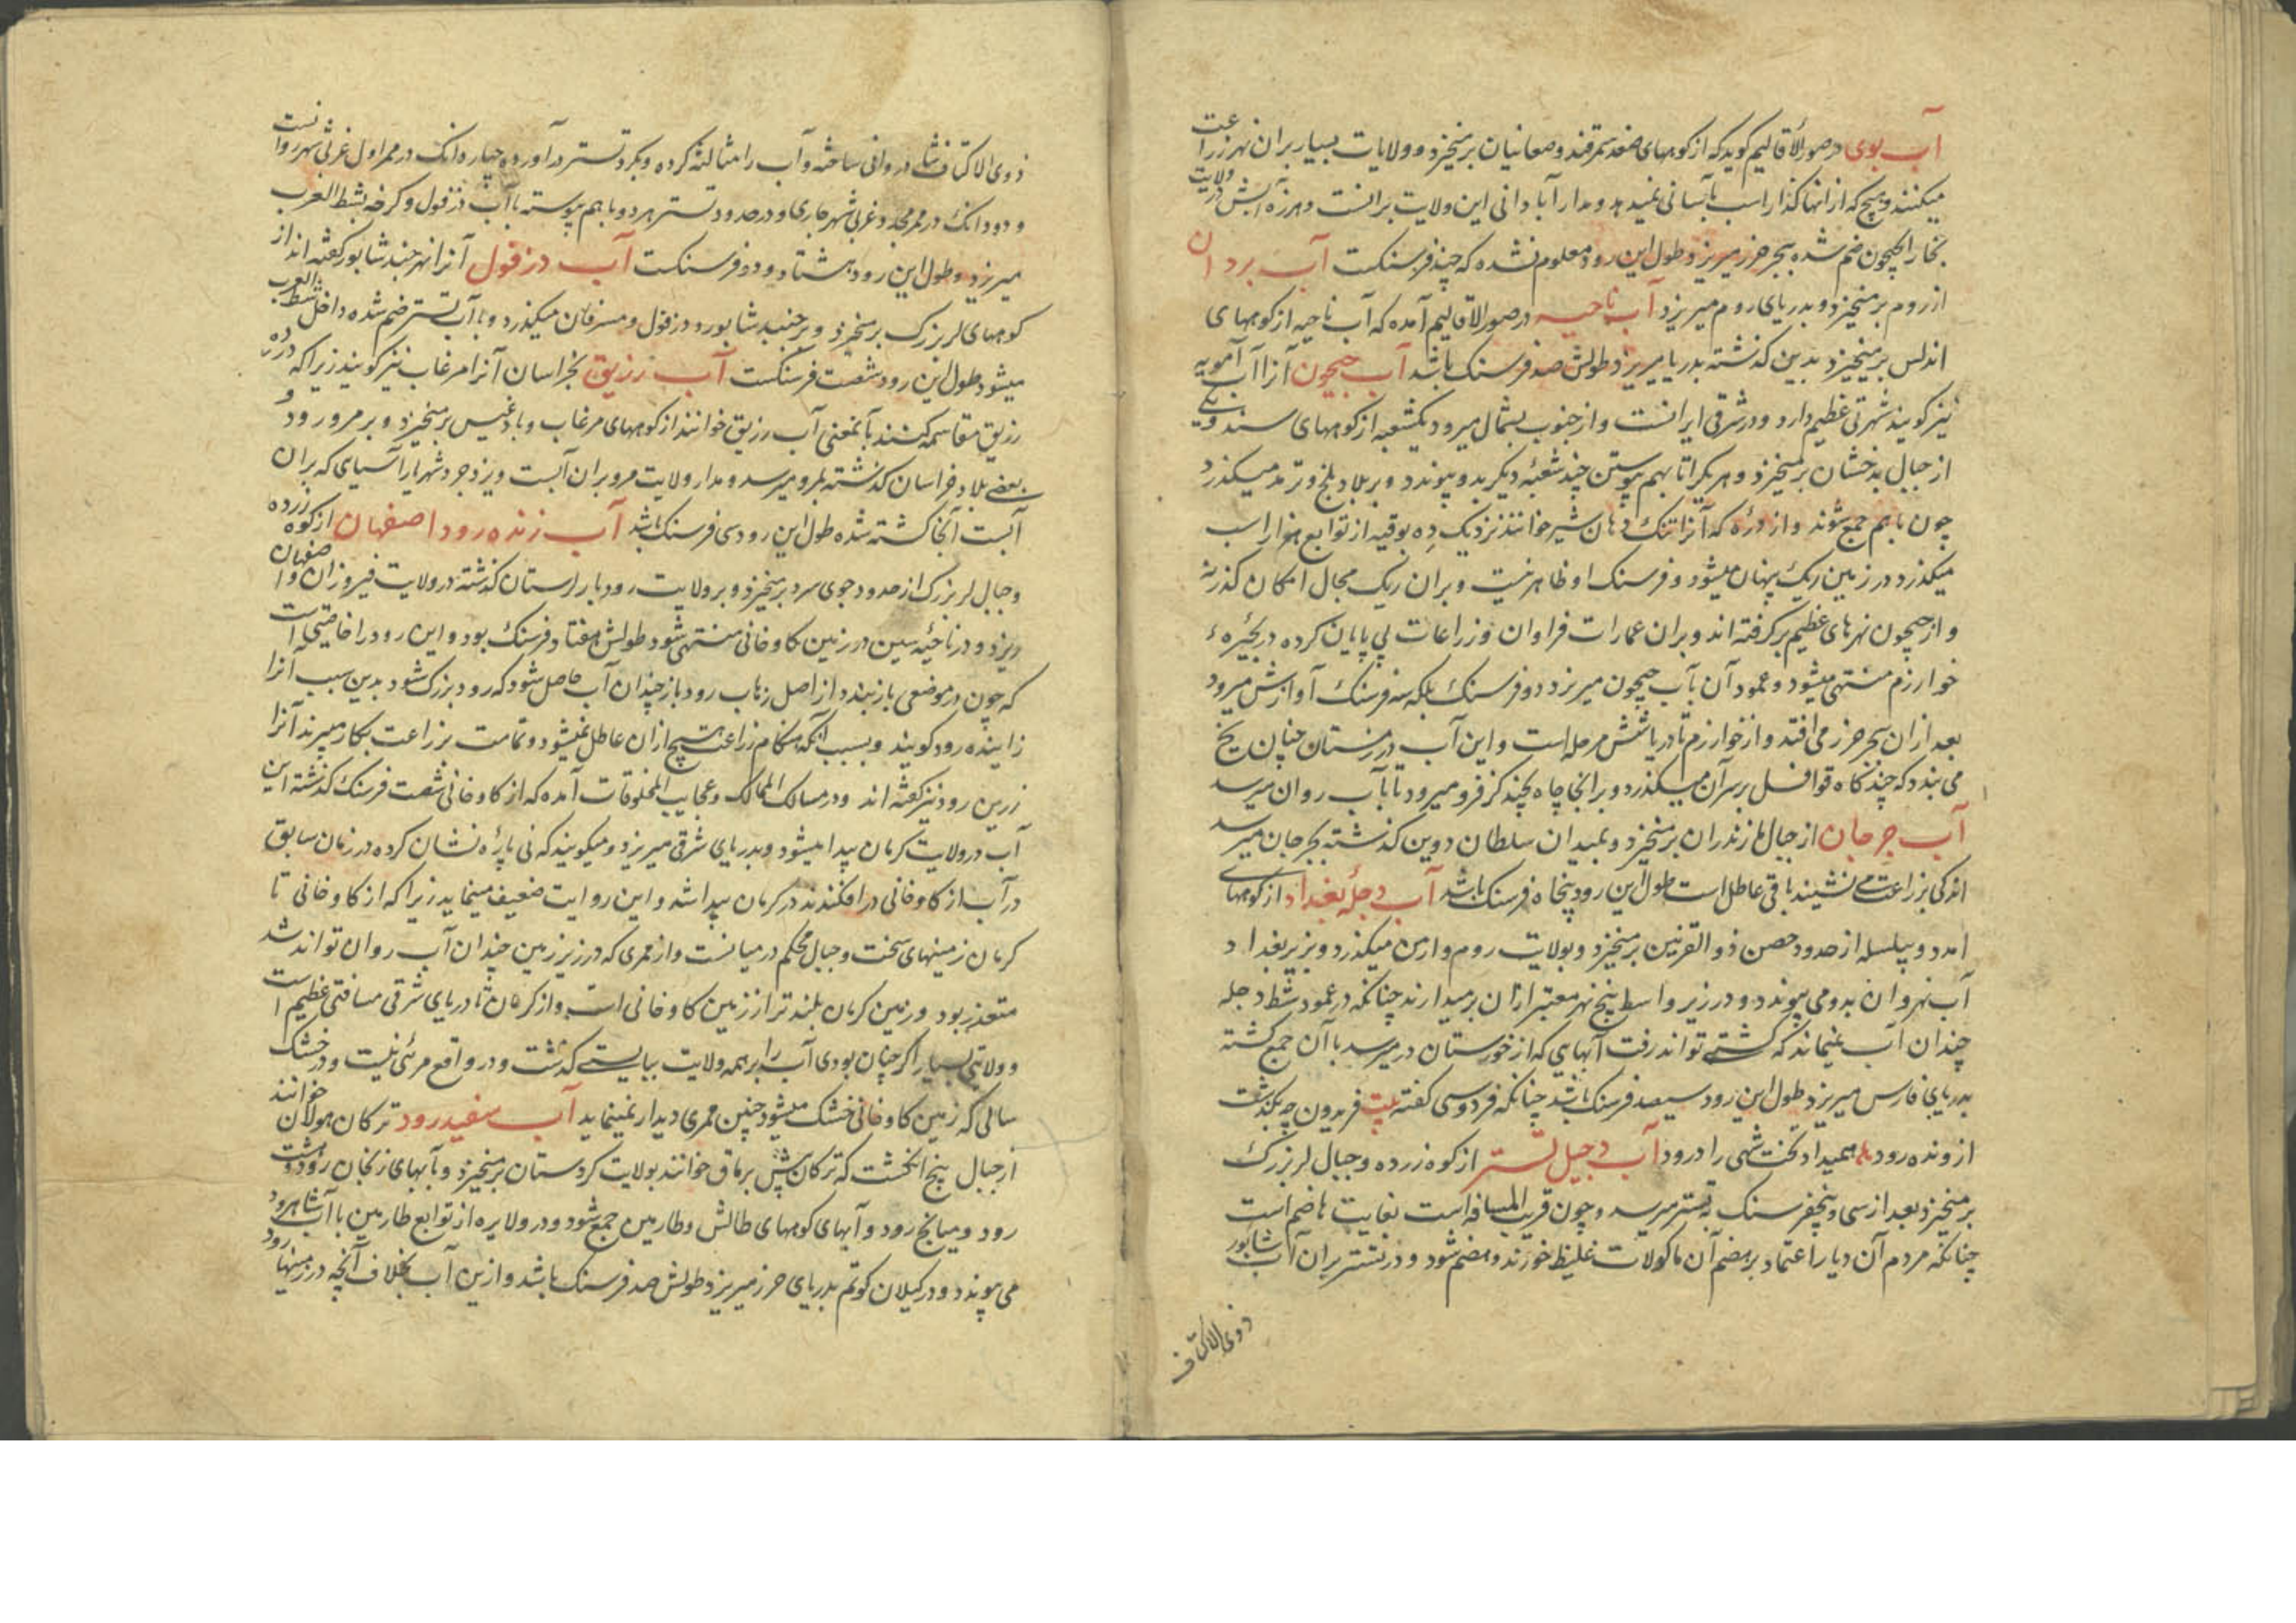 آب بوی در صور الأقالیم کوید که از کوههای صغد سمرقند و صغانیان برمیخیزد و ولایات بسیار بران نهر زراعت
میکنند و هیچ که از انها کذار اسب بآسانی نمیدهد و مدار آبادانی این ولایت برانست و هرزه آبش در ولایت
بخارا بجیحون ضم شده ببحر خزر میریزد و طول این رود معلوم نشده که چند فرسنکست آب بردان
از روم برمیخیزد و بدریای روم میریزد آب ناجیه در صور الاقالیم آمده که آب ناجیه از کوههای
اندلس برمیخیزد بدین کذشته بدریا میریزد و طولش صد فرسنک باشد آب جیحون آنرا آب آمویه
نیز کویند شهرتی عظیم دارد و در شرقی ایرانست و از جنوب بشمال میرود یکشعبه از کوههای سند و یکی
از جبال بدخشان برمیخیزد و هر یک را تا بهم پیوستن چند شعبهٔ دیکر بدو پیوندد و بر بلاد بلخ و ترمد میکذرد
چون باهم جمع شوند و از درّه که آنرا تنک دهان شیر خوانند نزدیک ده بوقیه از توابع هزار اسب
میکذرد در زمین ریک پنهان میشود و فرسنک او ظاهر نیست و بران ریک مجال امکان کذر نه
و از جیحون نهرهای عظیم برکرفته اند و بران عمارات فراوان و زراعات بی پایان کرده در بحیرهٔ
خوارزم منتهی میشود و عمود آن بآب جیحون میریزد دو فرسنک بلکه سه فرسنک آوازش میرود
بعد ازان ببحر خزر می افتد و از خوارزم تا دریا شش مرحله است و این آب در زمستان چنان یخ
می بندد که چند کاه قوافل بر سر آن میکذرد و بر انجا چاه بچند کز فرو میرود تا بآب روان میرسد
آب جرجان از جبال مازندران برمیخیزد و بمیدان سلطان دوین کذشته بجرجان میرسد
اندکی بزراعت می نشیند باقی عاطل است طول این رود پنجاه فرسنک باشد آب دجلهٔ بغداد از کوههای
امد و بیلسله از حدود حصن ذو القرنین برمیخیزد و بولایت روم و ارمن میکذرد و بزیر بغداد
آب نهروان بدو می پیوندد و در زیر واسط پنج نهر معتبر ازان برمیدارند چنانکه در عمود شط دجله
چندان آب نمیماند که کشتی تواند رفت آبهایی که از خوزستان در میرسد با آن جمع کشته
بدریای فارس میریزد طول این رود سیصد فرسنک باشد چنانکه فردوسی کفته بیت فریدون چو بکذشت
از ونده رود همیداد تخت شهی را درود آب دجیل تستر از کوه زرده و جبال لر بزرک
برمیخیزد بعد از سی و پنجفرسنک به تستر میرسد و چون قریب المسافه است بغایت هاضم است
چنانکه مردم آن دیار اعتماد بر هضم آن ماکولات غلیظ خورند و هضم شود و در تستر بران آب شابور
ذوی الاکتاف
ذوی الاکتاف شادروانی ساخته و آب را مثالثه کرده و بکرد تستر در آورده چهار دانک در ممر اول غربی شهر روانست
و دو دانک در ممر مجدد غربی شهر جاری و در حدود تستر هر دو باهم پیوسته با آب دزفول و کرخه بشط العرب
میریزد و طول این رود هشتاد و دو فرسنکست آب دزفول آنرا نهر جندشابور کفته اند از
کوههای لر بزرک برمیخیزد و بر جندیشابور و دزفول و مسرقان میکذرد و با آب تستر ضم شده داخل شط العرب
میشود طول این رود شصت فرسنکست آب رزیق بخراسان آنرا مرغاب نیز کویند زیرا که در ده
رزیق مقاسمه کنند بآنمعنی آب رزیق خوانند از کوههای مرغاب و بادغیس برمیخیزد و بر مرورود و
بعضی بلاد خراسان کذشته بمرو میرسد و مدار ولایت مرو بران آبست و یزدجرد شهریار آسیای که بران
آبست آنجا کشته شده طول این رود سی فرسنک باشد آب زنده رود اصفهان از کوه زرده
و جبال لر بزرک از حدود جوی سرد برمیخیزد و بر ولایت رودبار لرستان کذشته در ولایت فیروزان و اصفهان
ریزد و در ناحیهٔ سین در زمین کاوخانی منتهی شود طولش هفتاد فرسنک بود و این رود را خاصیتی است
که چون در موضعی باز بندد از اصل زهاب رود باز چندان آب حاصل شود که رود بزرک شود بدین سبب انرا
زاینده رود کویند و بسبب آنکه هنکام زراعت هیچ ازان عاطل نمیشود و تمامت بزراعت بکار میبرند آنرا
زرین رود نیز کفته اند و در مسالک الممالک و عجایب المخلوقات آمده که از کاوخانی شصت فرسنک کذشته این
آب در ولایت کرمان پیدا میشود و بدریای شرقی میریزد و میکویند که نی پارهٔ نشان کرده در زمان سابق
در آب از کاوخانی در افکندند در کرمان پیدا شد و این روایت ضعیف مینماید زیرا که از کاوخانی تا
کرمان زمینهای سخت و جبال محکم در میانست و از ممری که در زیر زمین چندان آب روان تواند شد
متعذر بود و زمین کرمان بلندتر از زمین کاوخانی است و از کرمان تا دریای شرقی مسافتی عظیم است
و ولایتی بسیار اکر چنان بودی آب را بر همه ولایت ببایستی کذشت و در واقع مرئی نیست و در خشک
سالی که زمین کاوخانی خشک میشود چنین ممری دیدار نمینماید آب سفیدرود ترکان هولان خوانند
از جبال پنج انکشت که ترکان بش برماق خوانند بولایت کردستان برمیخیزد و بآبهای زنجان رود و هشت
رود و میانج رود و آبهای کوههای طالش و طارمین جمع شود و در ولایره از توابع طارمین با آب شاهرود
می پیوندد و در کیلان کوتم بدریای خزر میریزد طولش صد فرسنک باشد و ازین آب بخلاف آنچه در زمینهای رود